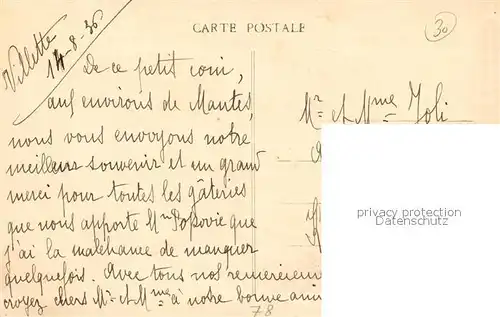 CARTE POSTALE
30
Villette
14-8-36
De ce petit coin,
aux environs de Mantes,
nous vous envoyons notre
meilleur souvenir et un grand
merci pour toutes les gâteries
que nous apporte Mr que
j'ai la malchance de manquer
quelquefois. Avec tous nos
croyez chers Mr et Mme à notre bonne
Mr et Mme Joli
privacy protection
Datenschutz
78